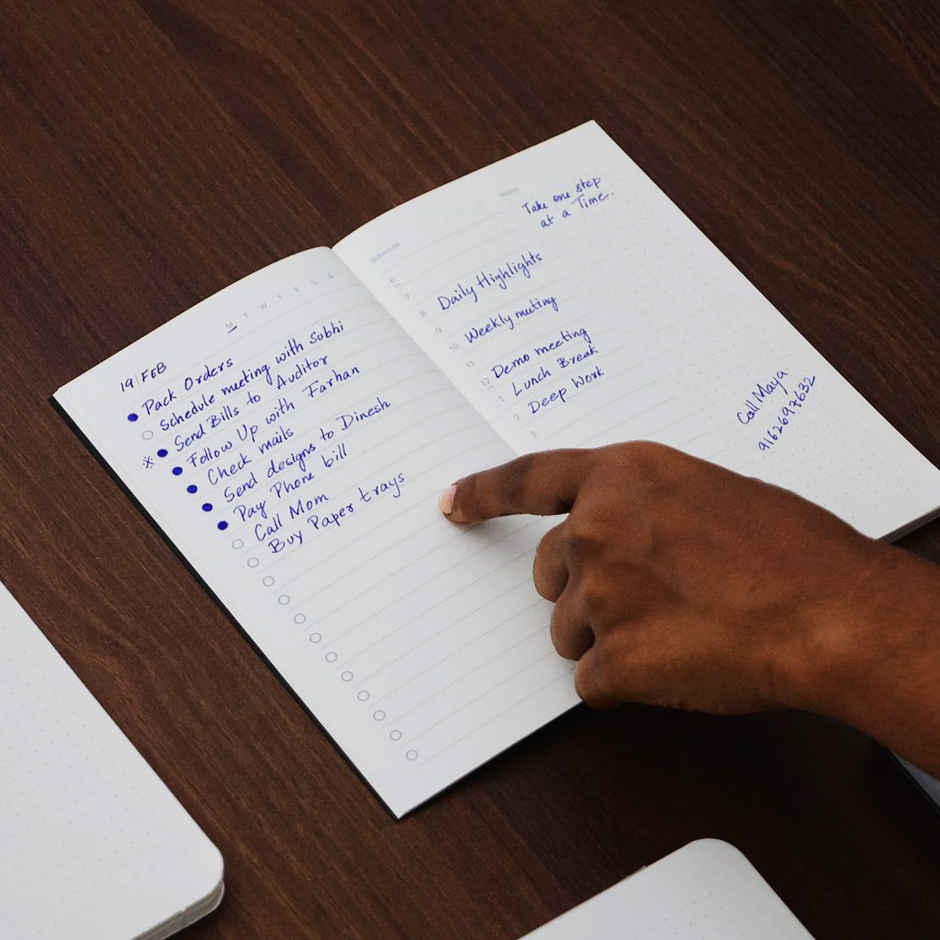 M T W T F S S
19 | FEB
Pack Orders
Schedule meeting with Sobhi
Send Bills to Auditor
Follow Up with Farhan
Check mails
Send designs to Dinesh
Pay Phone bill
Call Mom
Buy Paper trays
Take one step
at a Time.
Daily Highlights
Weekly muting
Demo meeting
Lunch Break
Deep Work
Call Maya
9162697632